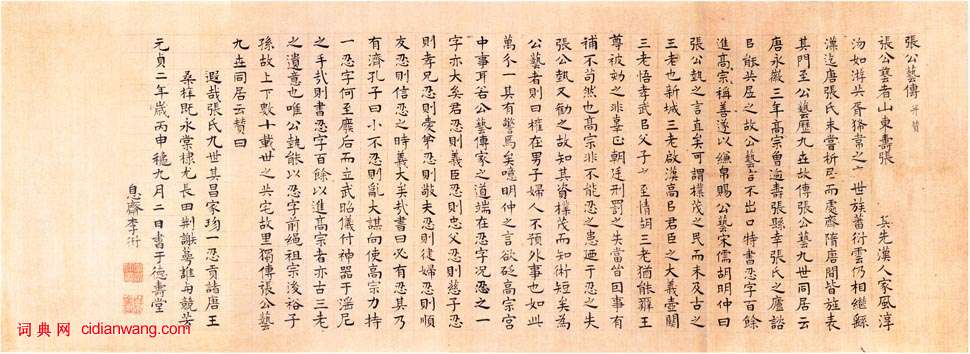 張公藝傳 并贊
張公藝者山東壽張 其先漢人家風淳
如游共胥猗常之世族蕃衍雲仍相繼綿
漢迄唐張氏未嘗析居而處齋隋唐間皆旌表
其門至公藝歷九世故傳張公藝九世同居云
唐永徽三年高宗曾過壽張縣幸張氏之廬諮
㠯能共居之故公藝言不出口特書忍字百餘
進高宗稱善遂以縑帛賜公藝宋儒胡明仲曰
張公執之言直矣可謂樸茂之民而未及古之
三老也新城三老啟漢高㠯君臣之大義壺關
三老悟孝武㠯父子之至情胡三老猶能雖王
尊被劾之非辜㠯朝廷刑罰之失當皆因事有
補不苟然也高宗非不能忍之患迺于忍之失
張公執又勸之故知其資樸茂而知術短矣為
公藝者則曰權在男子婦人不預外事也如此
萬分一其有警焉矣噫明仲之言欲砭高宗宮
中事耳若公藝傳家之道端在忍字況忍之一
字亦大矣君忍則義臣忍則忠父忍則慈子忍
則孝兄忍則愛弟忍則敬夫忍則從婦忍則順
友忍則信忍之時義大矣哉書曰必有忍其乃
有濟孔子曰小不忍則亂大謀向使高宗力持
一忍字何至麀后而立武昭儀付神器于淫尼
之手哉則書忍字百餘以進高宗者亦古三老
之遺意也唯公執能以忍字前繩祖宗後裕子
孫故上下數十載世之共宅故里獨傳張公藝
九世同居云贊曰
遐哉張氏九世其昌家珍一忍貢諸唐王
桑梓既永棠棣尤長田荊謝蕚誰與競芳
元貞二年歲丙申穐九月二日書于德壽堂
息齋李衎
词典网 cidianwang.com